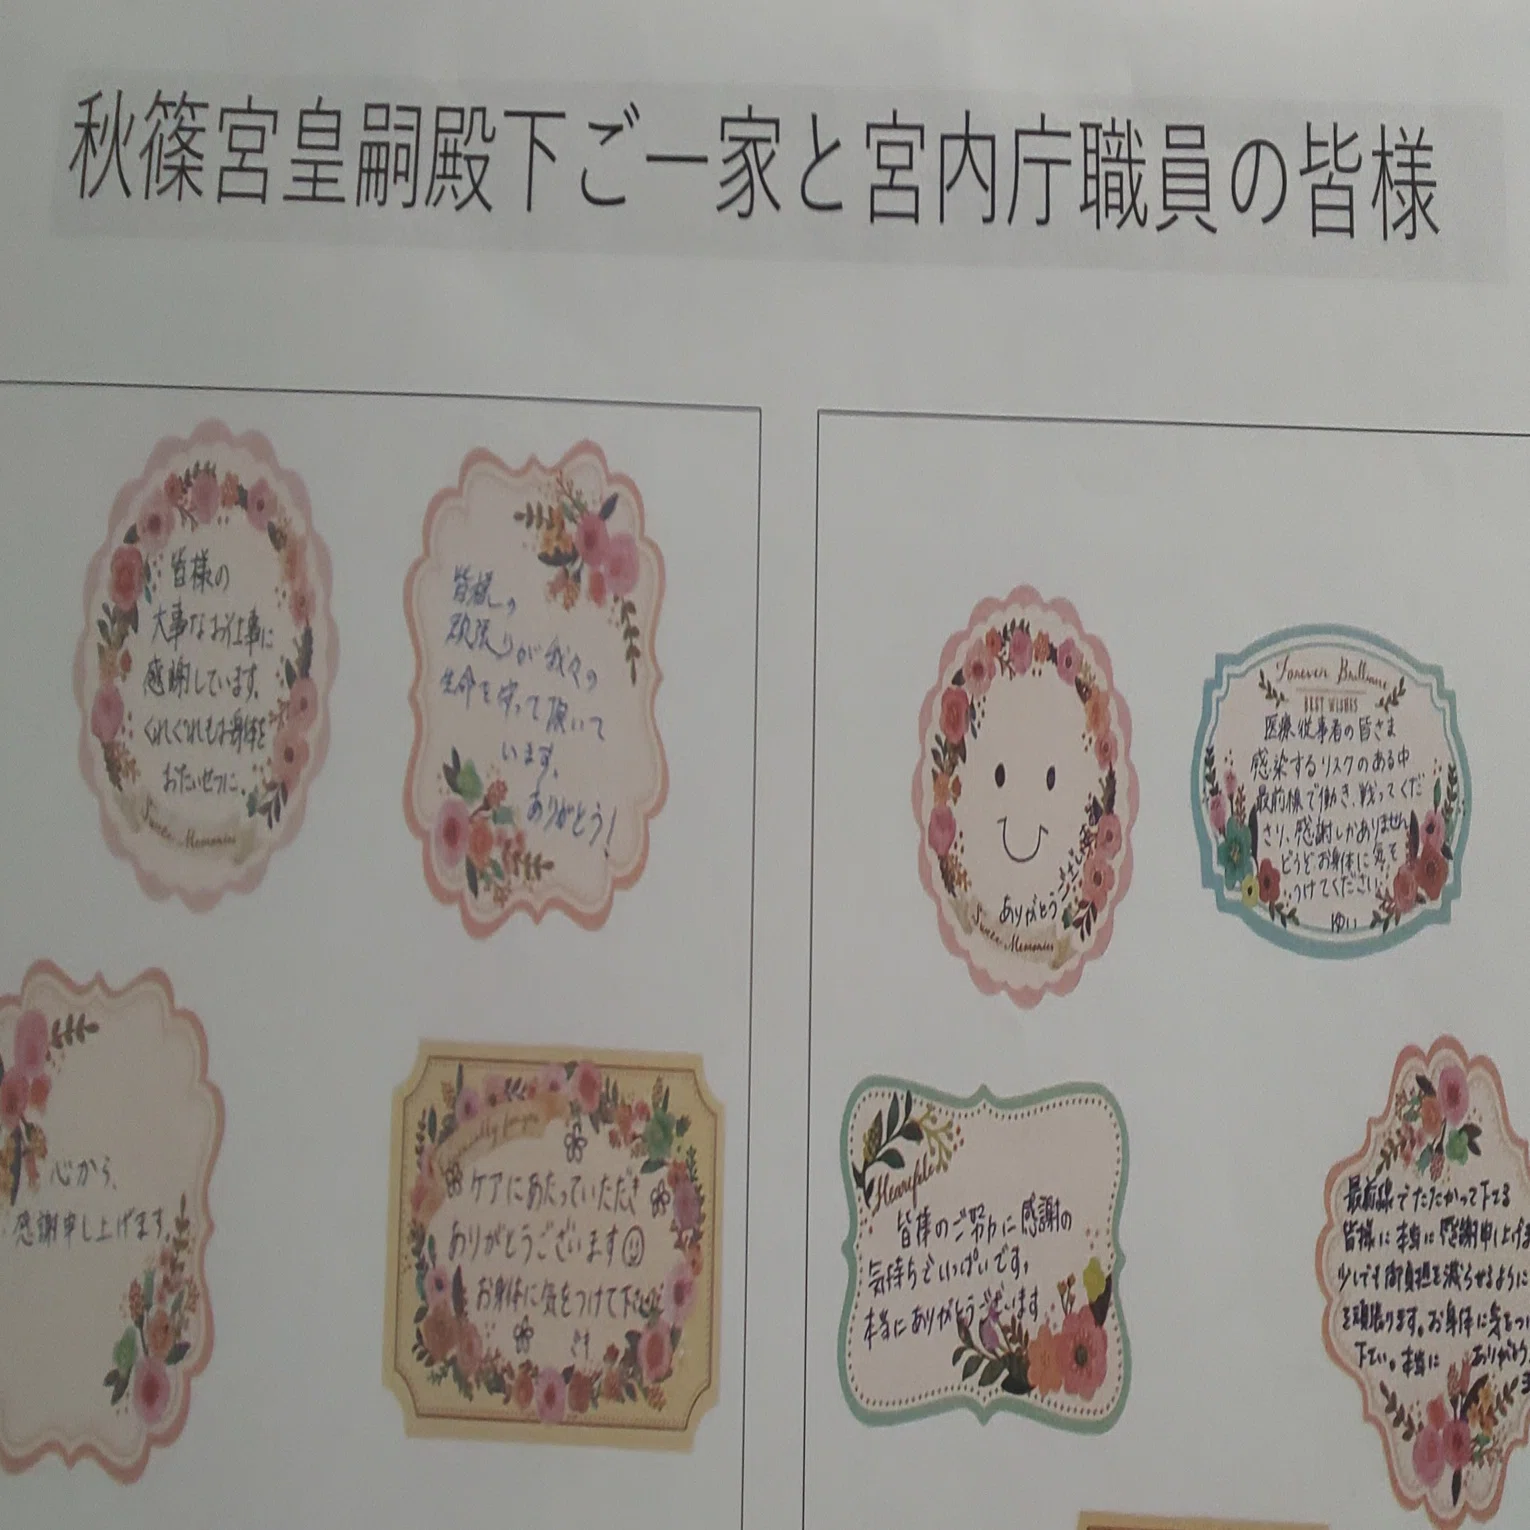 秋篠宮皇嗣殿下ご一家と宮内庁職員の皆様
皆様の
大事なお仕事に
感謝しています。
くれぐれもお身体を
おたいせつに。
Sweet Memories
皆様の
頑張りが我々の
生命を守って頂いて
います。
ありがとう!
心から、
感謝申し上げます。
ケアにあたっていただき
ありがとうございます
お身体に気をつけて下さい
ありがとうござい
Sweet Memories
Forever Brilliance
BEST WISHES
医療従事者の皆さま
感染するリスクのある中
最前線で働き、戦ってくだ
さり、感謝しかありません
どうぞお身体に気を
つけてください。
ゆい
Heartfelt
皆様のご努力に感謝の
気持ちでいっぱいです。
本当にありがとうございます
最前線でたたかって下さる
皆様に本当に感謝申し上げま
少しでも御負担を減らせるように
を頑張ります。お身体に気をつけ
下さい。本当に ありがとう